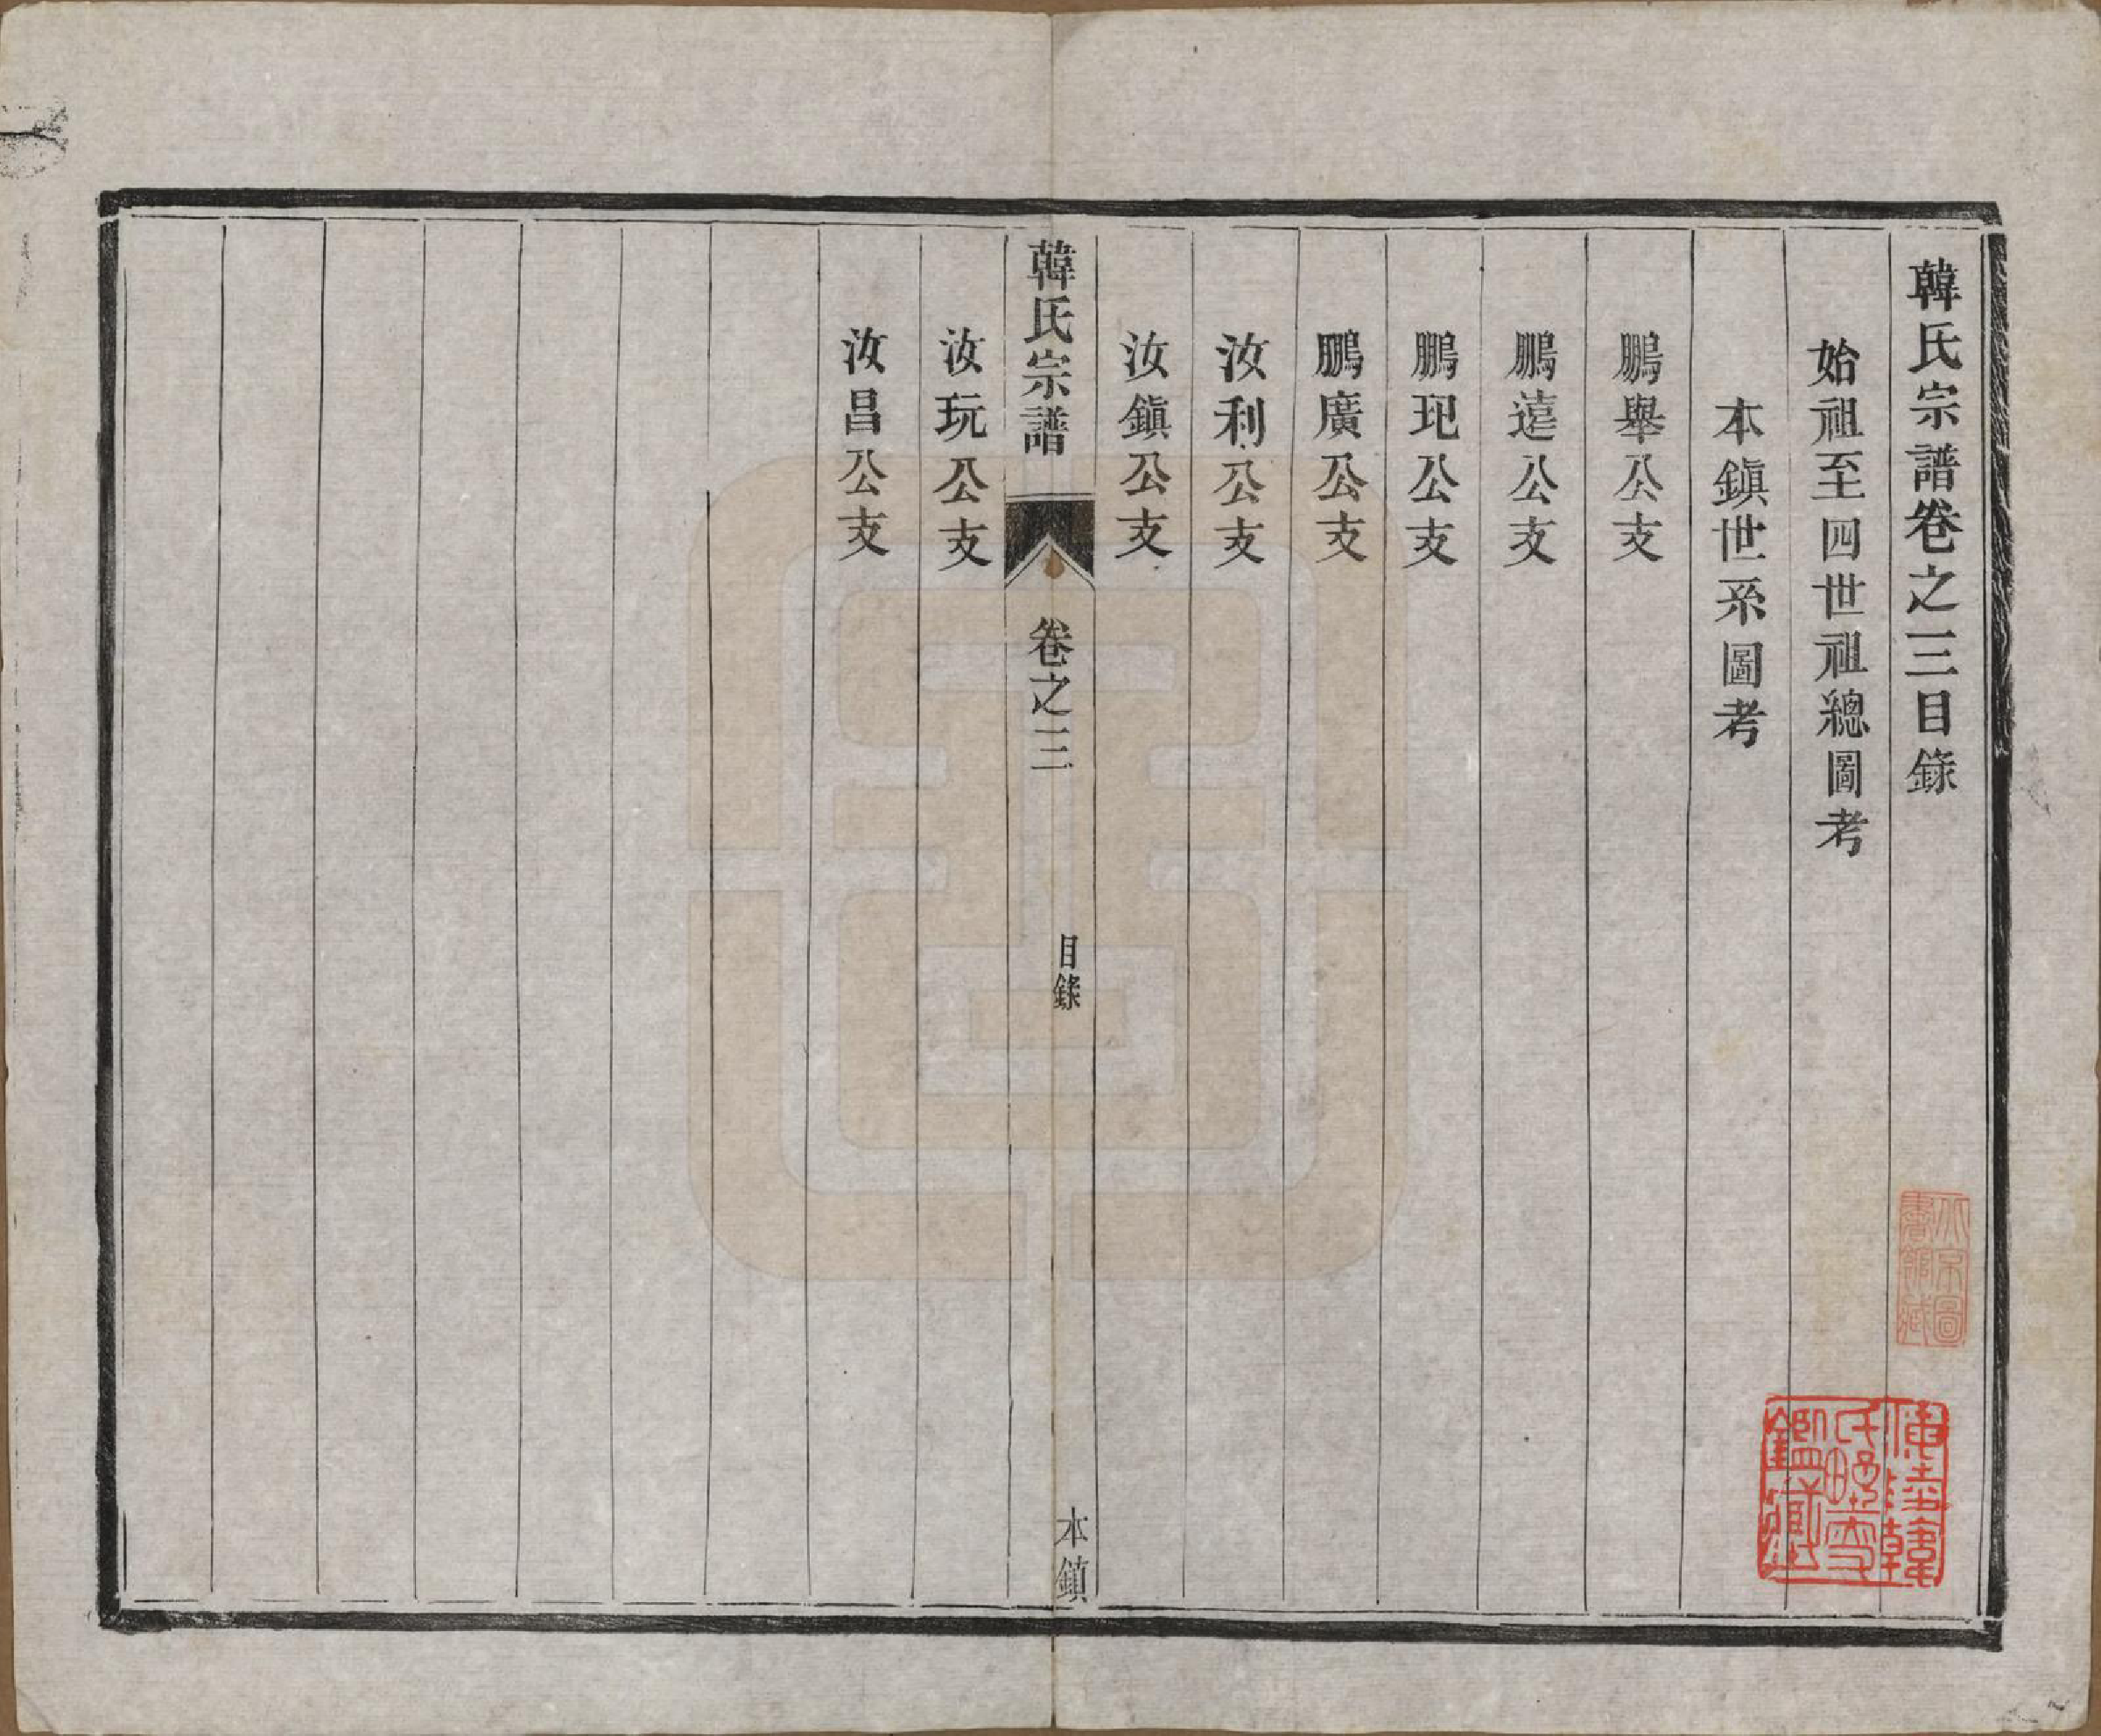 韓氏宗譜卷之三目錄
始祖至四世祖總圖考
本鎭世系圖考
鵬舉公支
鵬遠公支
鵬玘公支
鵬廣公支
汝利公支
汝鎭公支
韓氏宗譜
卷之三
目錄
本鎭
汝玩公支
汝昌公支
北京圖書館藏